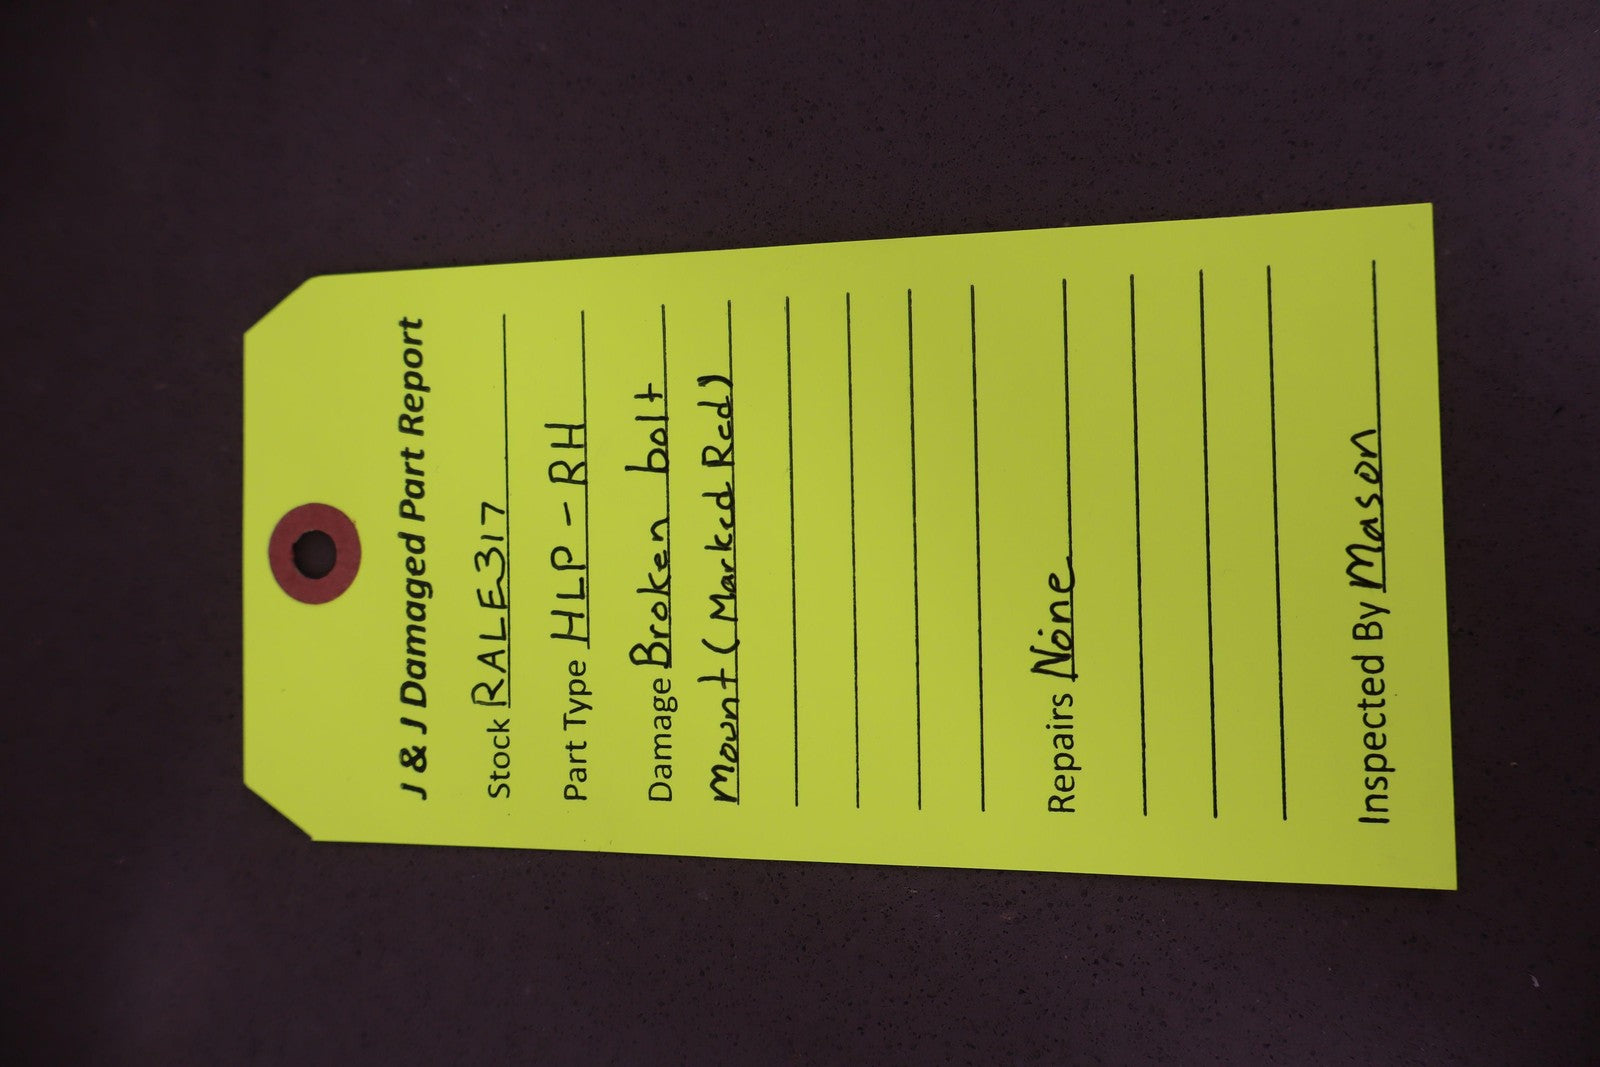 J & J Damaged Part Report
Stock RALE317
Part Type HLP - RH
Damage Broken bolt
mount (Marked Red)
Repairs None
Inspected By Mason